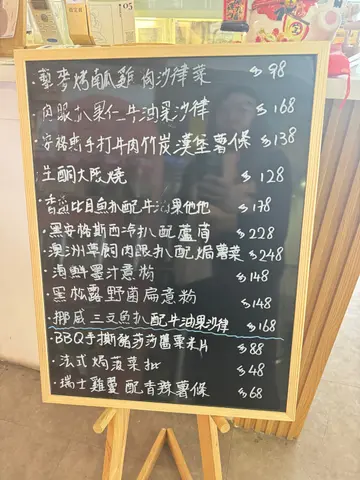 ·藜麥烤南瓜雞肉沙律菜 $98
·肉眼扒果仁牛油果沙律 $168
·安格斯手打牛肉竹炭漢堡薯條 $138
生酮大阪燒 $128
·香煎比目魚扒配牛油果他他 $178
·黑安格斯西冷扒配蘆筍 $228
澳洲草飼肉眼扒配焗薯菜 $248
·海鮮墨汁意粉 $148
·黑松露野菌扁意粉 $148
·挪威三文魚扒配牛油果沙律 $168
·BBQ手撕豬莎莎醬粟米片 $88
·法式焗菠菜批 $48
·瑞士雞翼配香辣薯條 $68